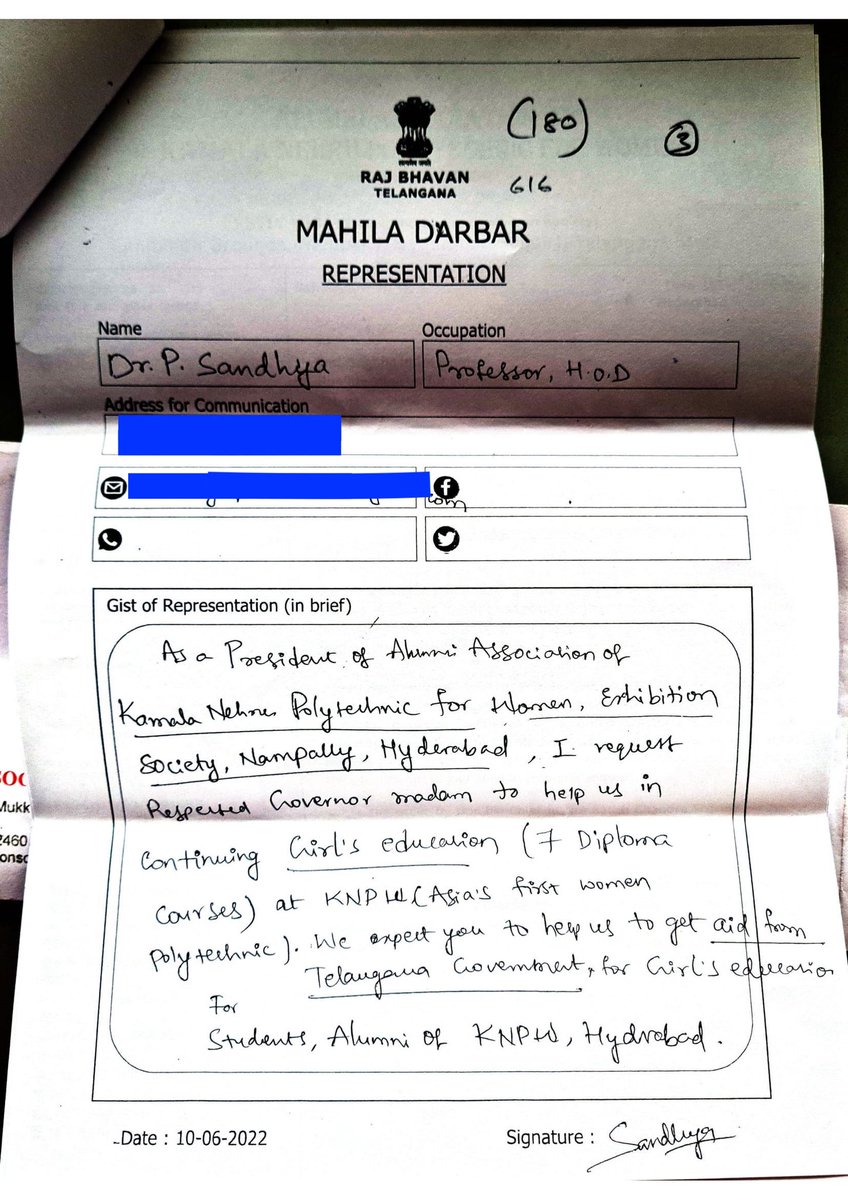 (180)
3
616
सत्यमेव जयते
RAJ BHAVAN
TELANGANA
MAHILA DARBAR
REPRESENTATION
Name
Occupation
Dr. P. Sandhya
Professor, H.O.D
Address for Communication
com
Gist of Representation (in brief)
As a President of Alumni Association of
Kamala Nehru Polytechnic for Women, Exhibition
Society, Nampally, Hyderabad, I request
Respected Governor madam to help us in
Continuing Girl's education (7 Diploma
Courses) at KNPW (Asia's first women
Polytechnic). We expect you to help us to get aid from
Telangana Government, for Girl's education
For
Students, Alumni of KNPW, Hydrabad.
Date : 10-06-2022
Signature : Sandhya
Mukk
2460
onsc